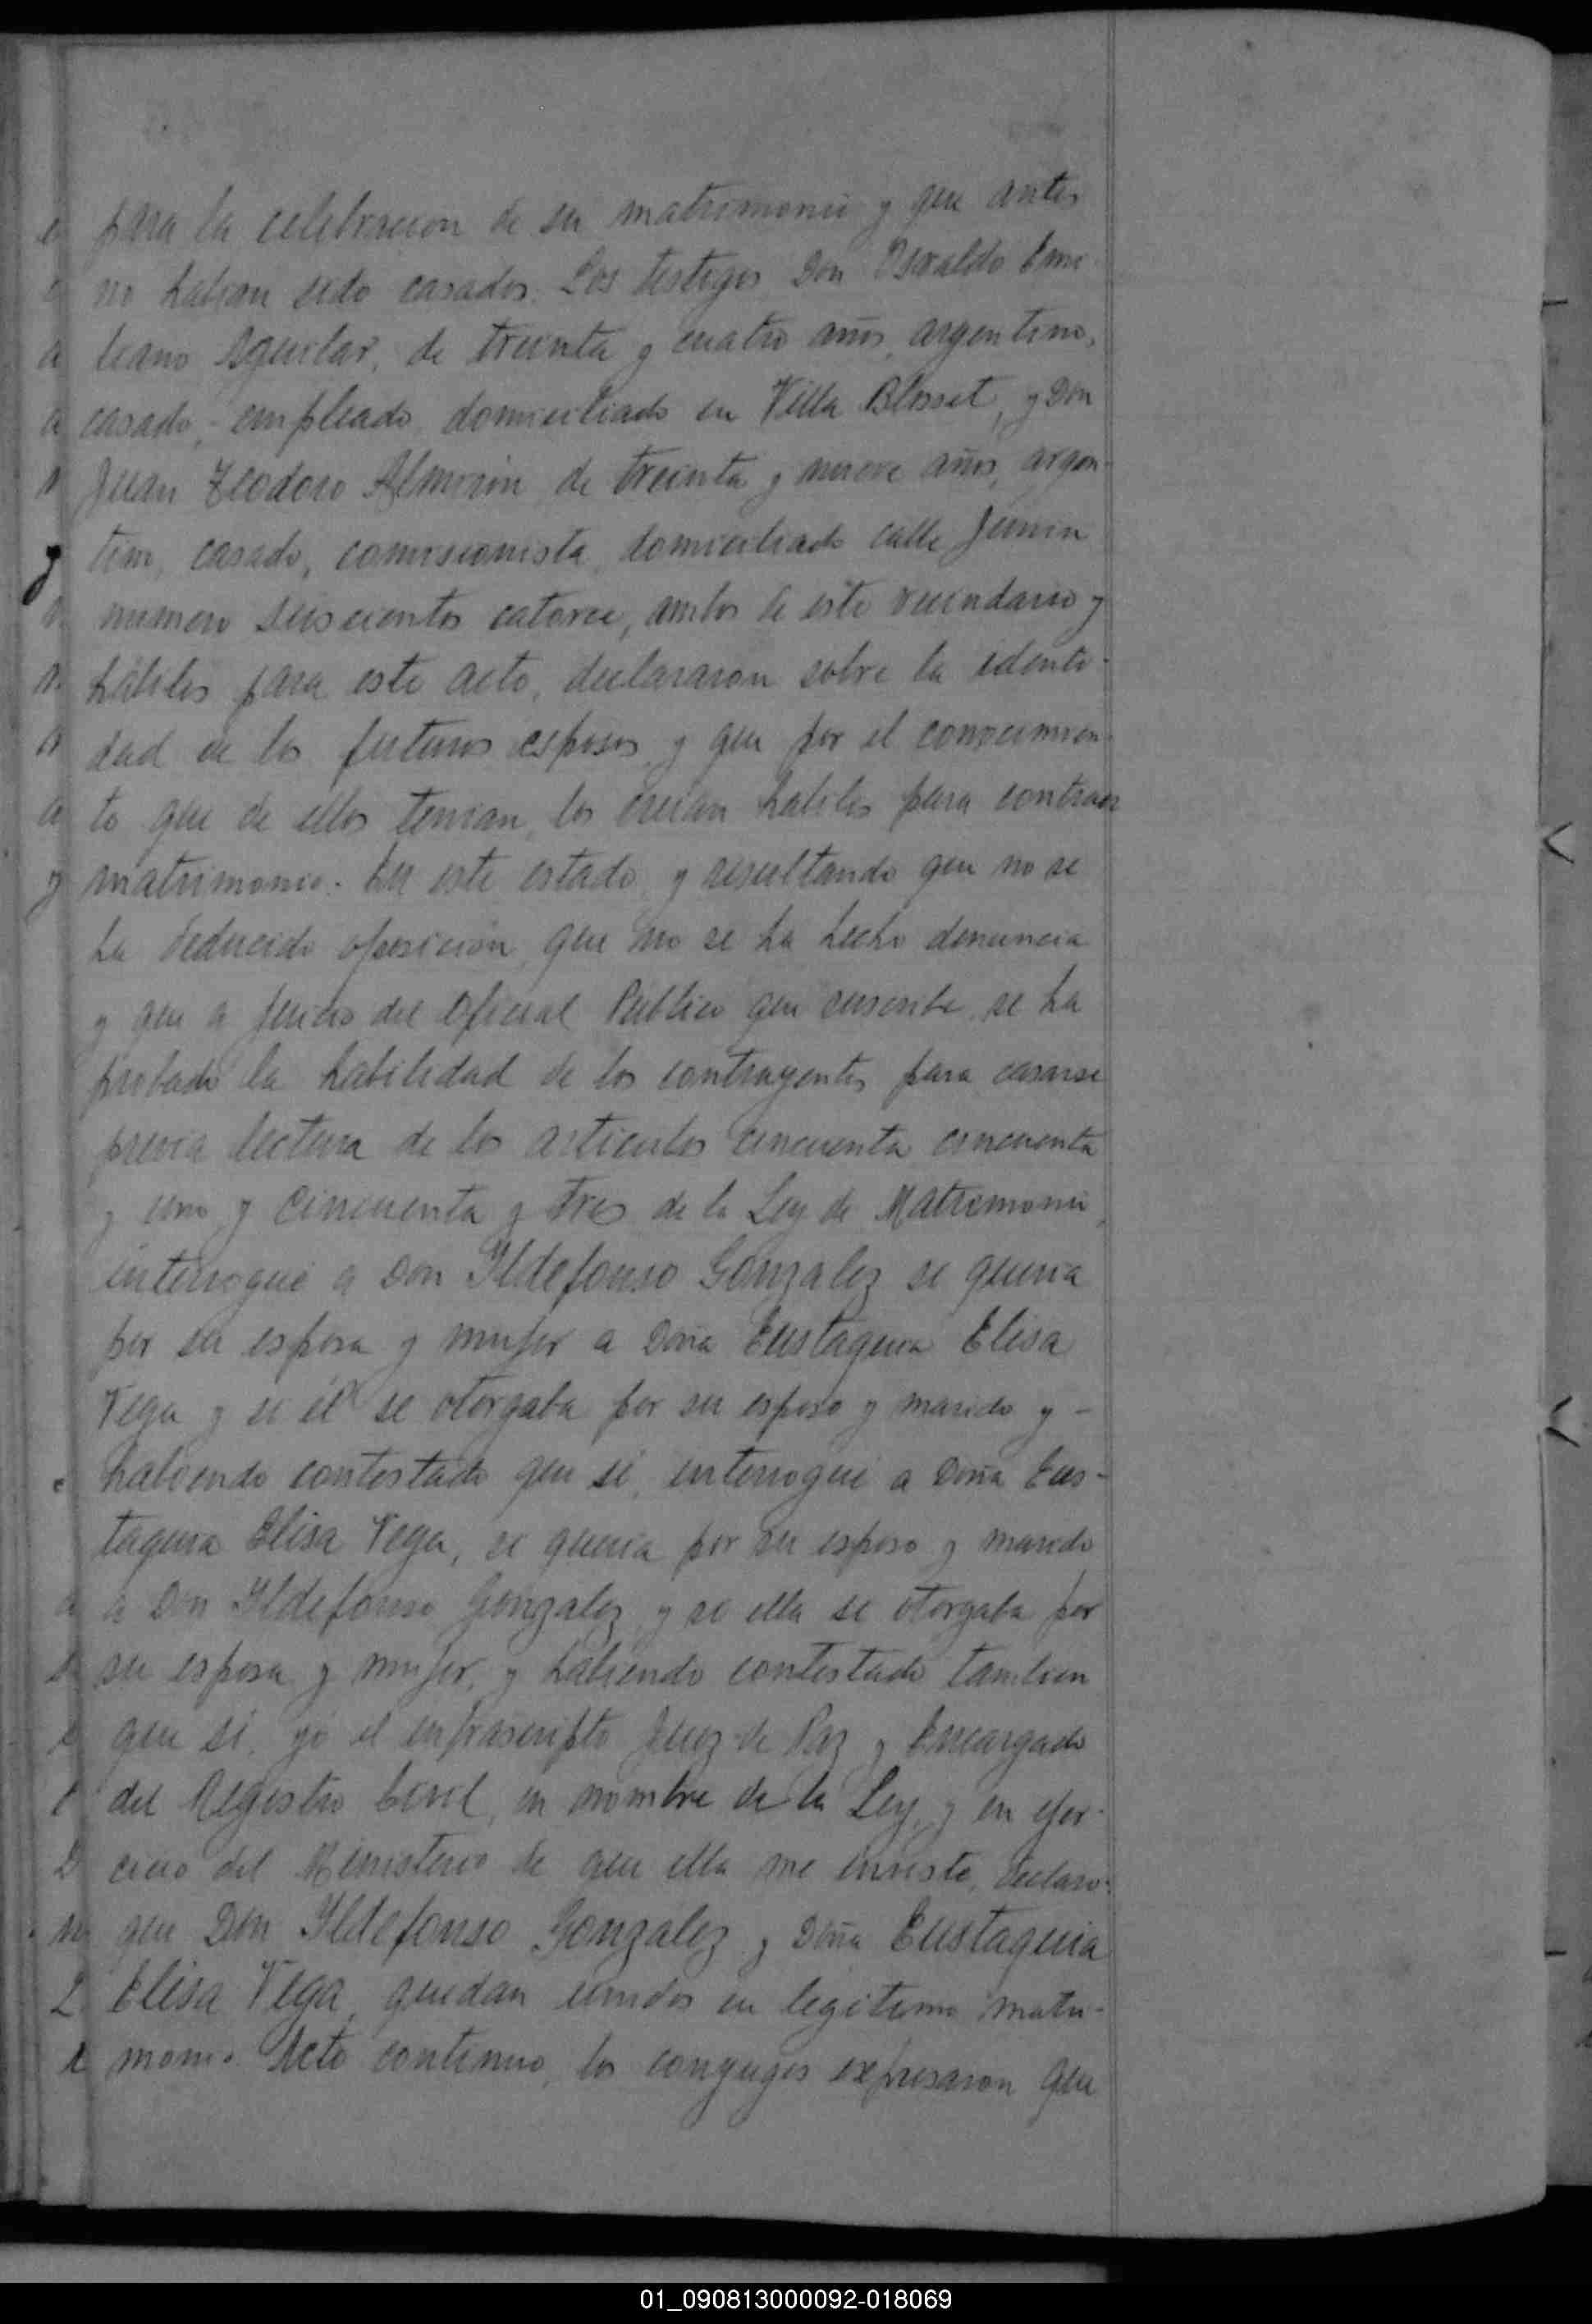 para la celebracion de su matrimonio y que antes
no habian sido casados. Los testigos Don Osvaldo Emi-
liano Aguilar, de treinta y cuatro años, argentino,
casado, empleado domiciliado en Villa Blosset, y Don
Juan Teodoro Almirón de treinta y nueve años, argen-
tino, casado, comisionista, domiciliado calle Junin
numero seiscientos catorce, ambos de este vecindario y
hábiles para este acto, declararon sobre la identi-
dad de los futuros esposos y que por el conocimien-
to que de ellos tenian, los creian habiles para contraer
matrimonio. En este estado y resultando que no se
ha deducido oposición, que no se ha hecho denuncia
y que a juicio del Oficial Publico que suscribe, se ha
probado la habilidad de los contrayentes para casarse
previa lectura de los articulos cincuenta, cincuenta
y uno y cincuenta y tres de la Ley de Matrimonio,
interrogué a Don Ildefonso Gonzalez si queria
por su esposa y mujer a Doña Eustaquia Elisa
Vega y si él se otorgaba por su esposo y marido y -
habiendo contestado que sí, interrogué a Doña Eus-
taquia Elisa Vega, si queria por su esposo y marido
a Don Ildefonso Gonzalez y si ella se otorgaba por
su esposa y mujer, y habiendo contestado tambien
que sí, yó el infrascripto Juez de Paz y Encargado
del Registro Civil, en nombre de la Ley, y en ejer-
cicio del Ministerio de que ella me inviste, declaro:
que Don Ildefonso Gonzalez y Doña Eustaquia
Elisa Vega, quedan unidos en legitimo matri-
monio. Acto continuo, los conyuges expresaron que
01_090813000092-018069